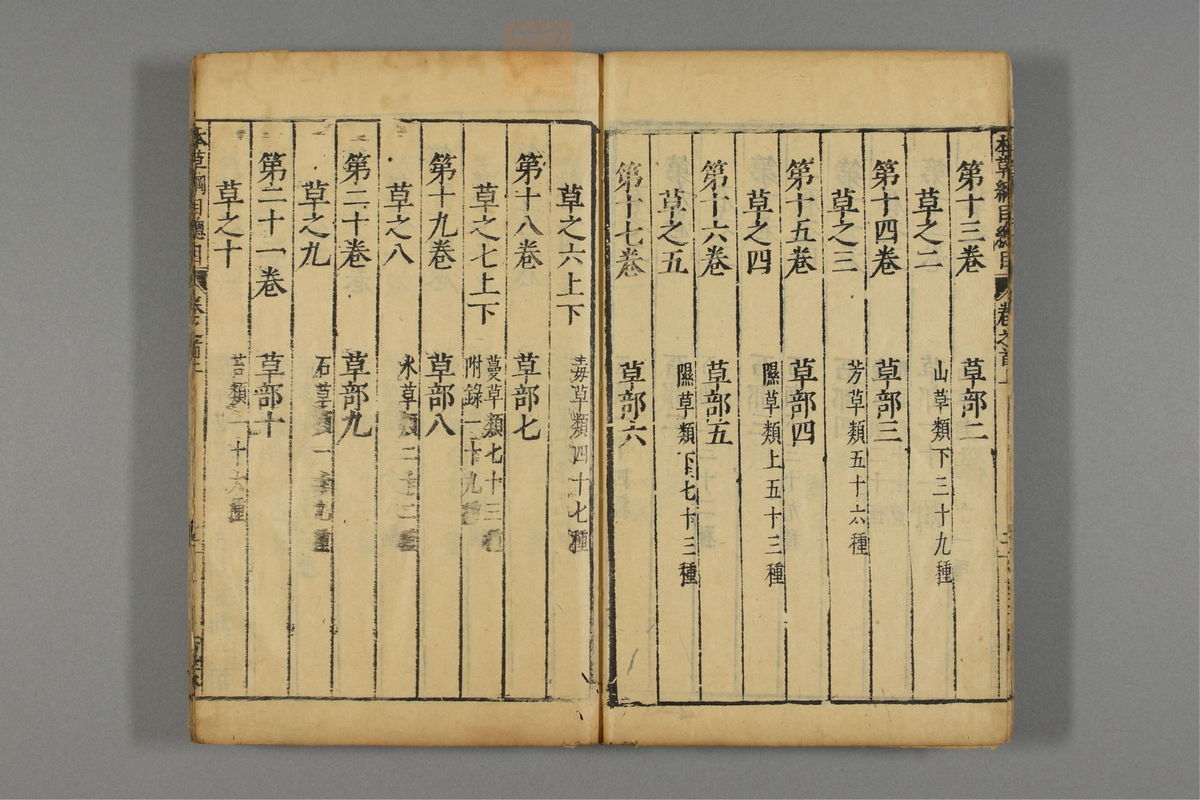 第十三卷　草部二
草之二　山草類下三十九種
第十四卷　草部三
草之三　芳草類五十六種
第十五卷　草部四
草之四　隰草類上五十三種
第十六卷　草部五
草之五　隰草類下七十三種
第十七卷　草部六
草之六上下　毒草類四十七種
第十八卷　草部七
草之七上下　蔓草類七十三種
附錄一十九種
第十九卷　草部八
草之八　水草類二十二種
第二十卷　草部九
草之九　石草類一十九種
第二十一卷　草部十
草之十　苔類一十六種
本草綱目總目　卷之首上